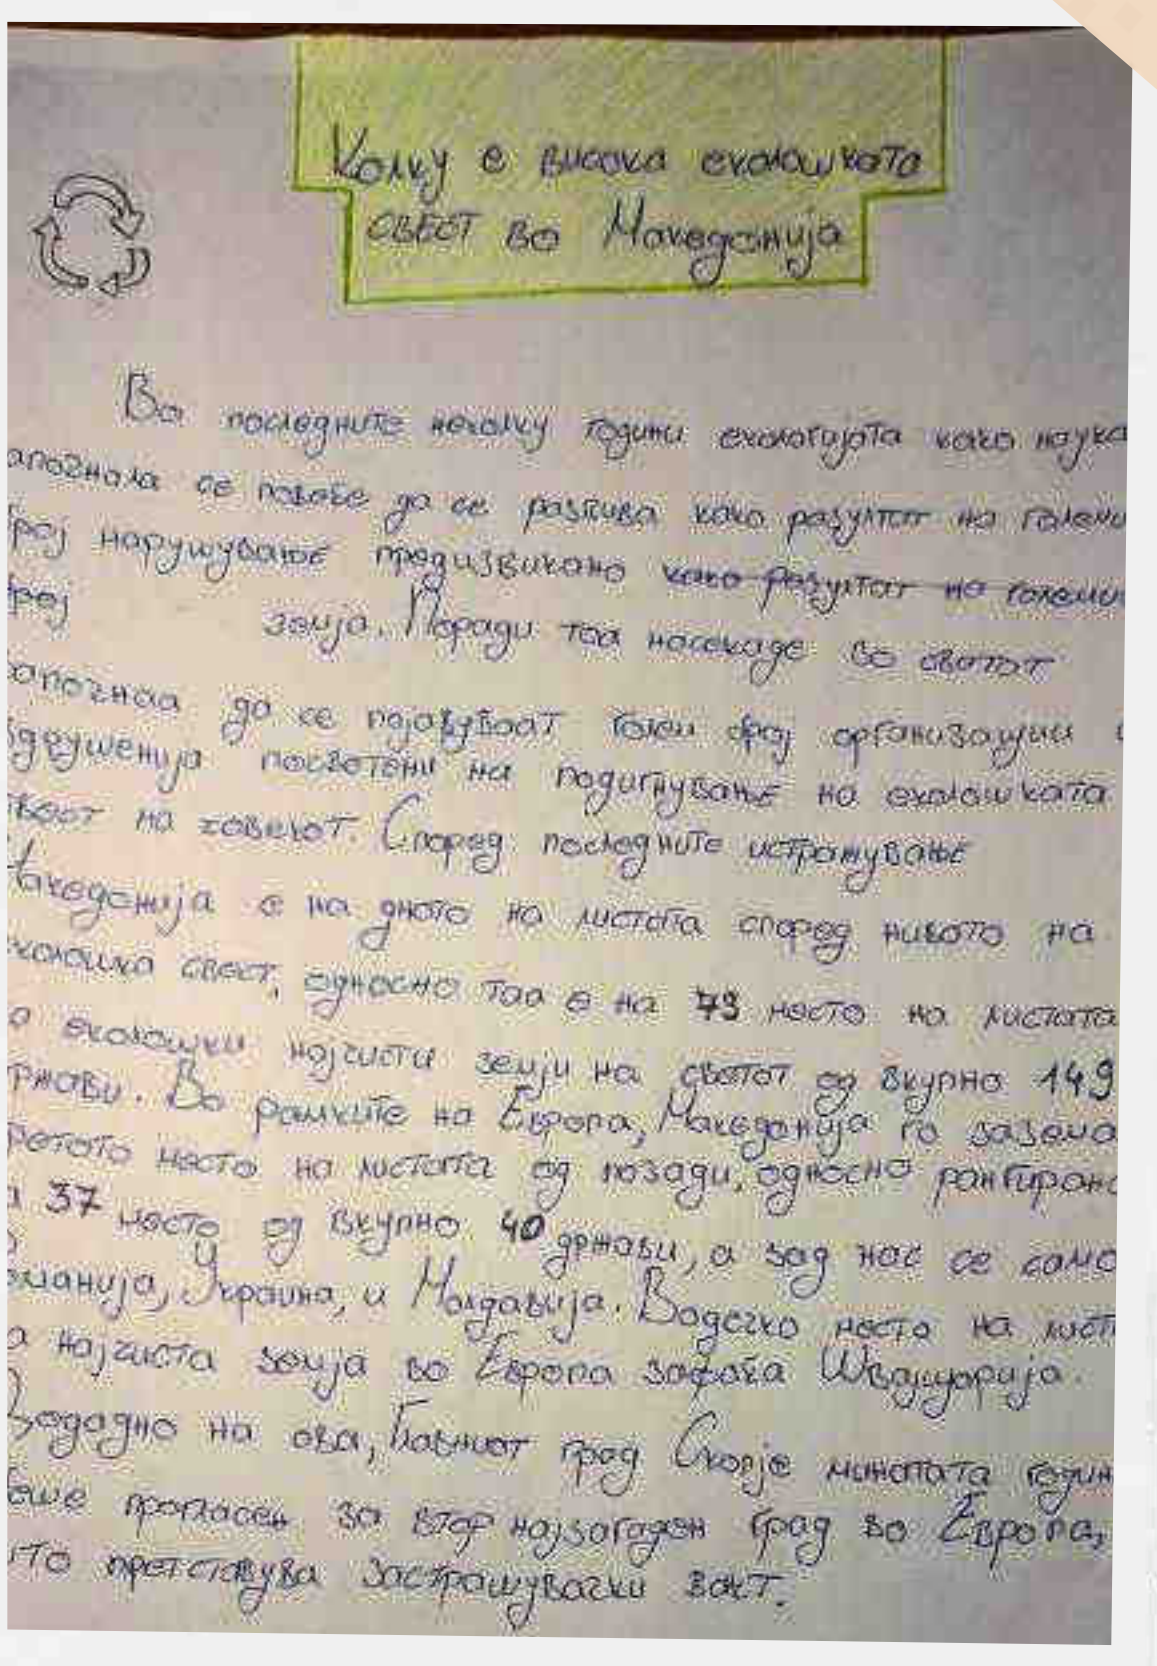 Колку е висока еколошката
свест во Македонија
Во последните неколку години екологијата како наука
апозната се повеќе да се развива како резултат на големи
рој нарушување предизвикано како резултат на големи
рој земја. Поради тоа насекаде во светот
апознаа да се појавуваат голем број организации
здруженија посветени на подигнување на еколошката
вест на човекот. Според последните истражување
Македонија е на дното на листата според нивото на
колошка свест, односно таа е на 73 место на листата
о еколошки најчисти земји на светот од вкупно 149
ржави. Во рамките на Европа, Македонија го зазема
ретото место на листата од позади, односно рангирано
а 37 место од вкупно 40 држави, а зад нас се само
оманија, Украина, и Молдавија. Водечко место на лист
а најчиста земја во Европа зафаќа Швајцарија.
Дододадно на ова, главниот град Скопје минатата годин
еше прогласен за втор најзагаден град во Европа,
што претставува застрашувачки факт.